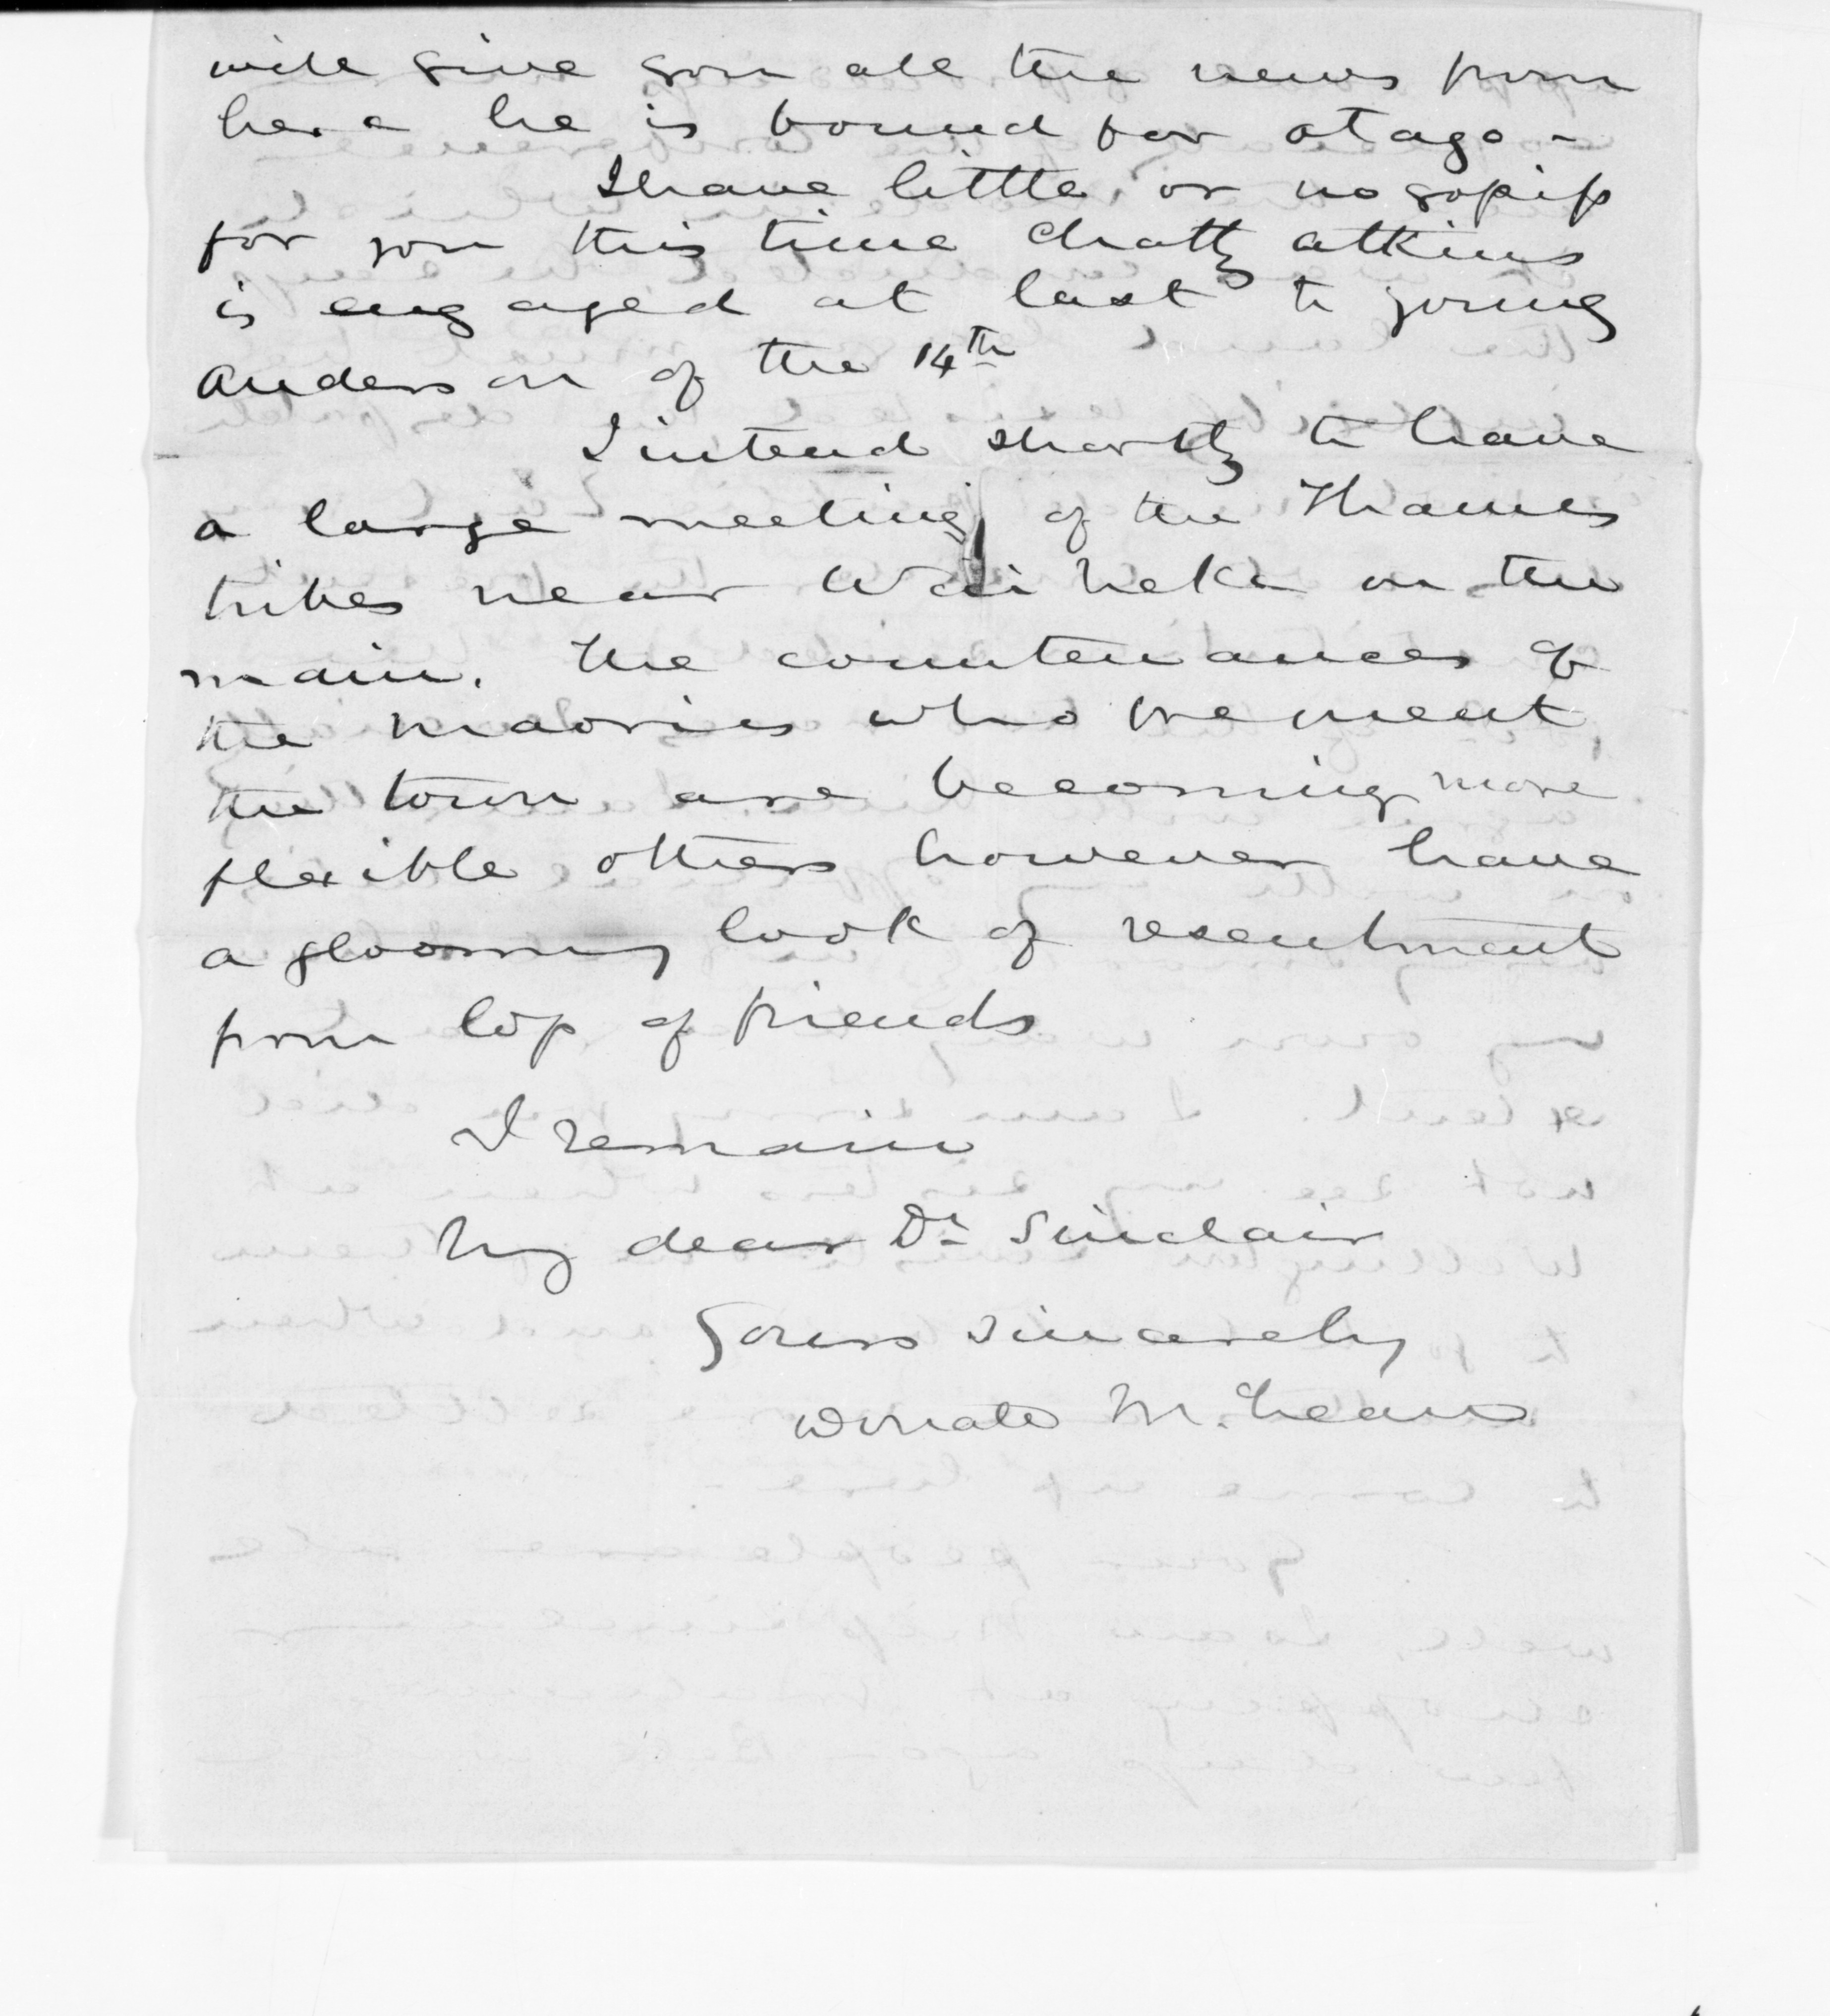 will give you all the news from
here he is bound for otago -
I have little, or no gossip
for you this time Chatty atkins
is engaged at last to young
Anderson of the 14th
I intend shortly to have
a large meeting of the Thames
tribes near Waiheke on the
main. The countenances of
the maories who frequent
the town are becoming more
flexible others however have
a gloomy look of resentment
from loss of friends
I remain
My dear Dr Sinclair
Yours sincerely
Donald McLean